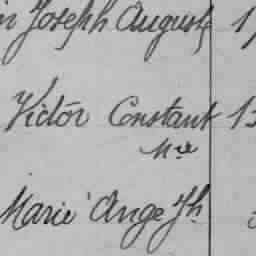 Joseph Auguste
Victor Constant
Mce
Marie Ange Jh